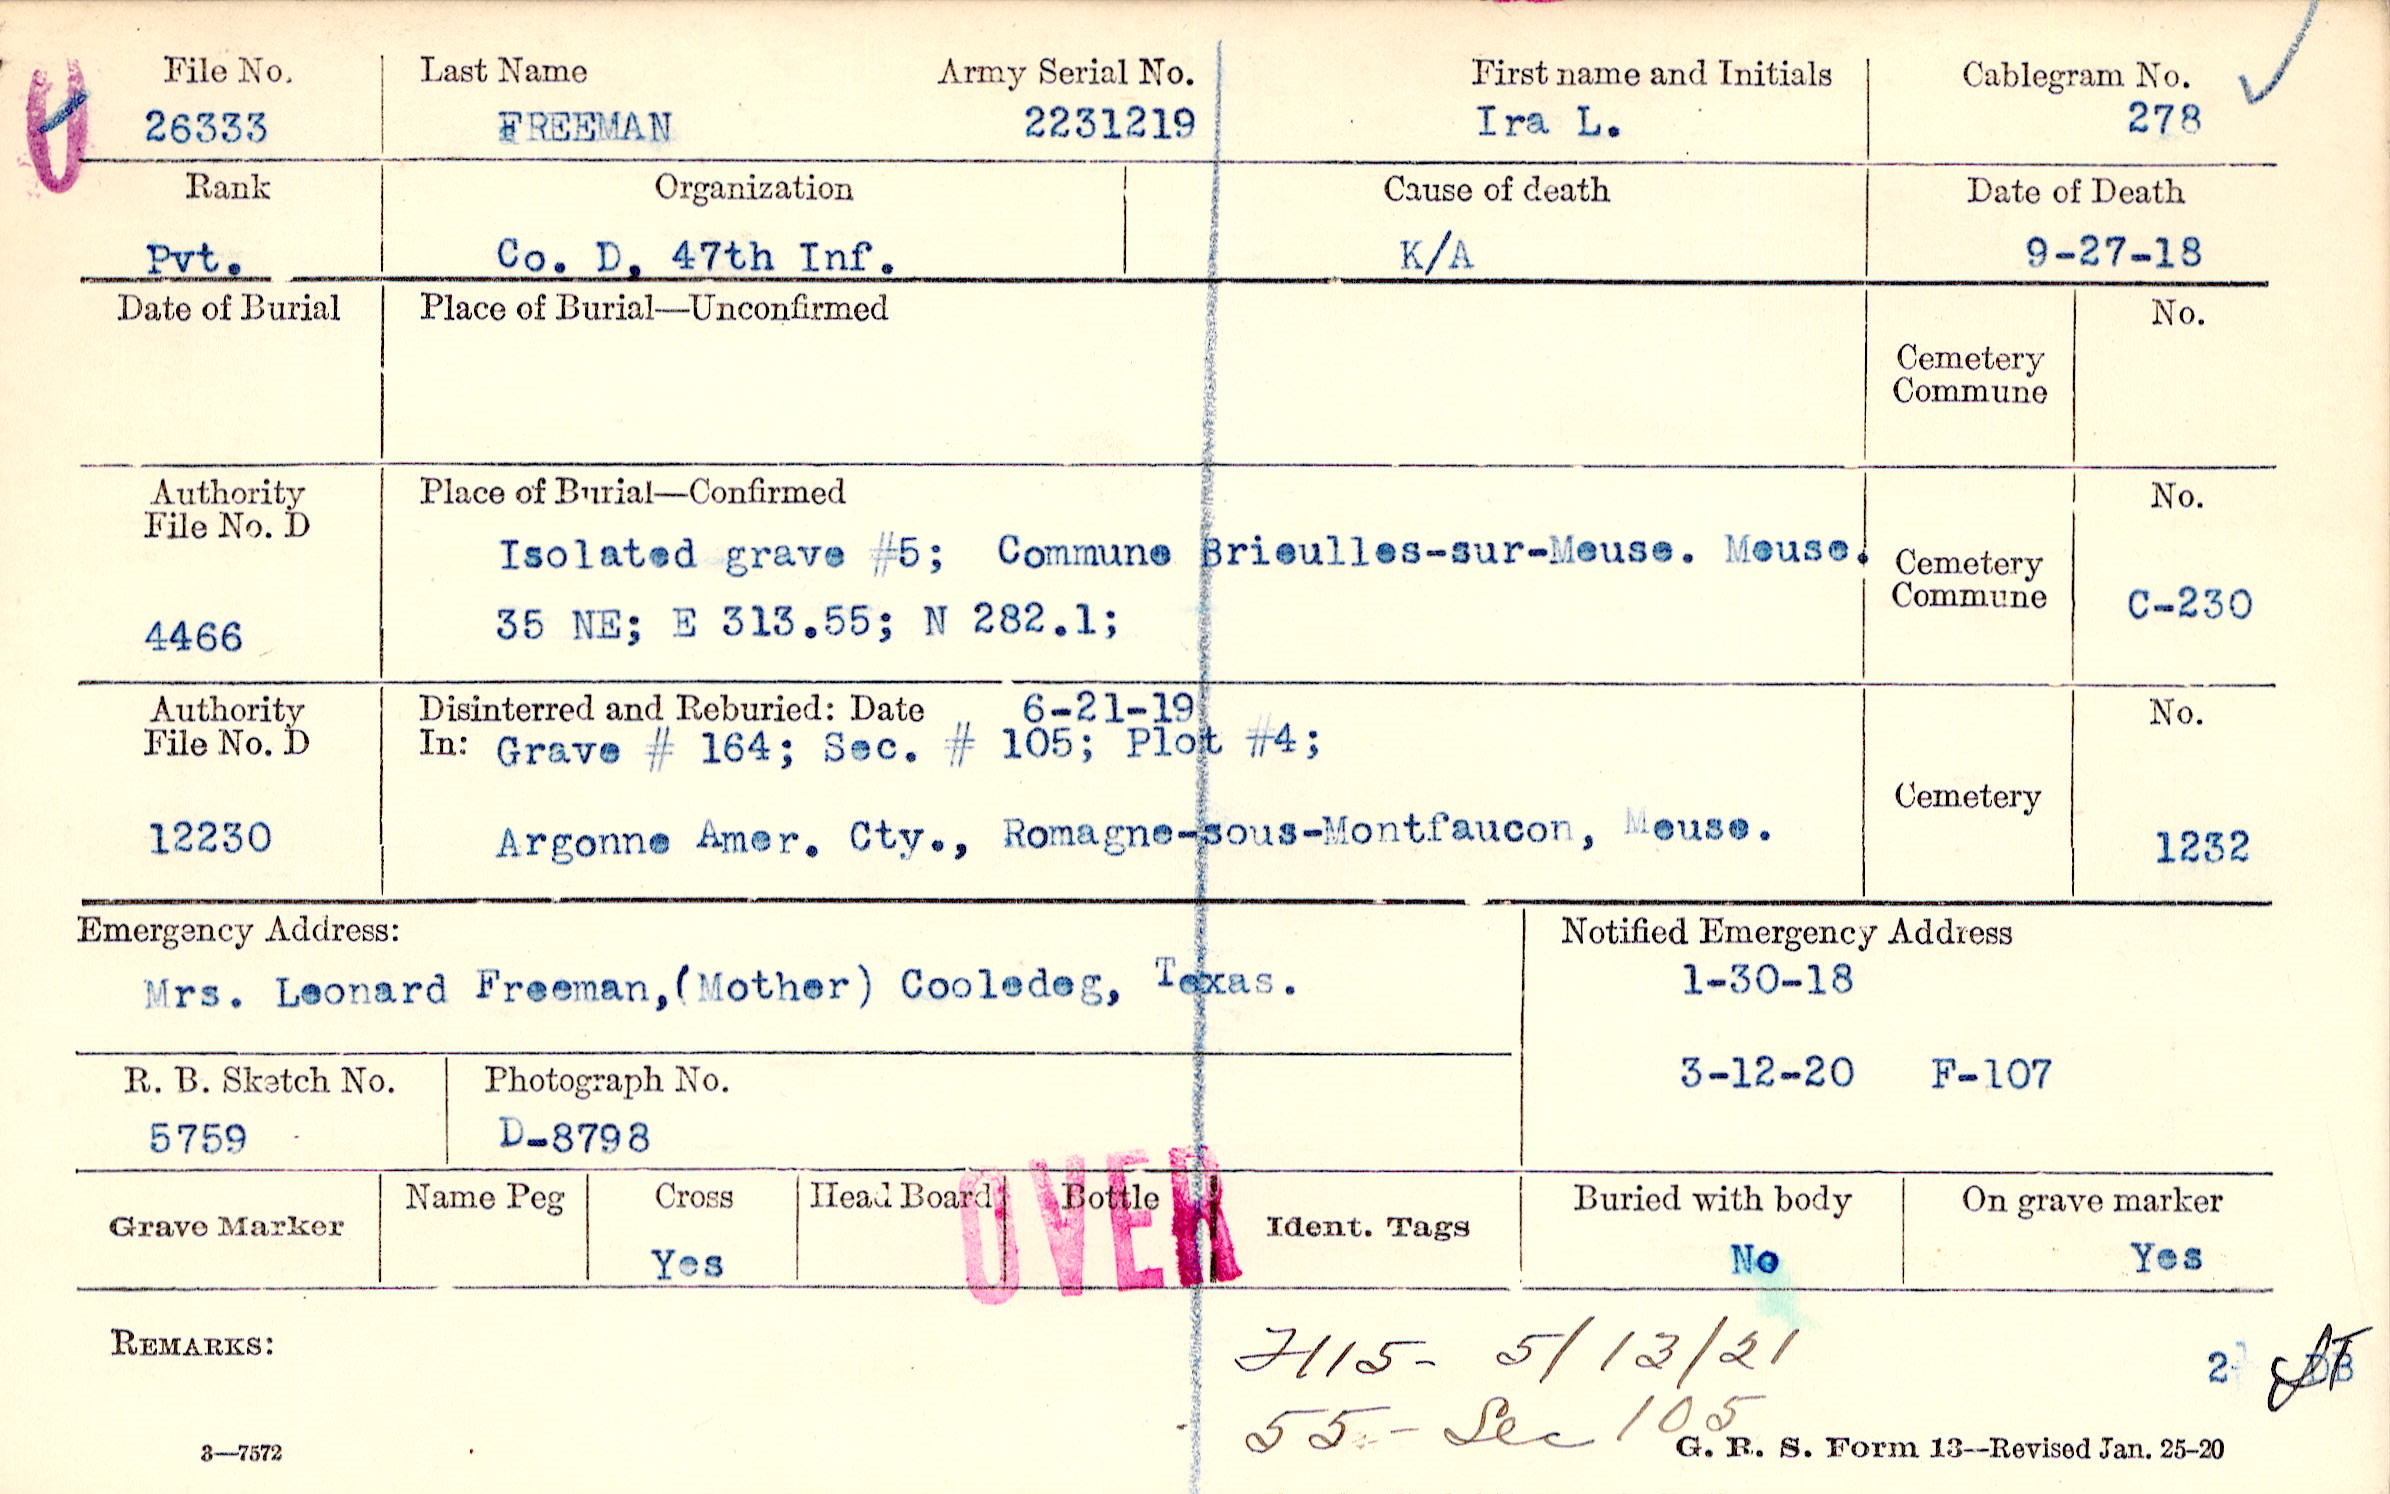 File No. Last Name Army Serial No. First name and Initials Cablegram No.
26333 FREEMAN 2231219 Ira L. 278
Rank Organization Cause of death Date of Death
Pvt. Co. D, 47th Inf. K/A 9-27-18
Date of Burial Place of Burial—Unconfirmed No.
Cemetery
Commune
Authority Place of Burial—Confirmed No.
File No. D
Isolated grave #5; Commune Brieulles-sur-Meuse. Meuse.
Cemetery
Commune C-230
4466 35 NE; E 313.55; N 282.1;
Authority Disinterred and Reburied: Date 6-21-19 No.
File No. D In: Grave # 164; Sec. # 105; Plot #4;
Cemetery
12230 Argonne Amer. Cty., Romagne-sous-Montfaucon, Meuse. 1232
Emergency Address: Notified Emergency Address
Mrs. Leonard Freeman,(Mother) Cooledeg, Texas. 1-30-18
3-12-20 F-107
R. B. Sketch No. Photograph No.
5759 D-8798
OVER
Grave Marker Name Peg Cross Head Board Bottle Ident. Tags Buried with body On grave marker
Yes No Yes
REMARKS: 7115- 5/13/21
55-- Sec 105
3—7572 G. R. S. Form 13—Revised Jan. 25-20